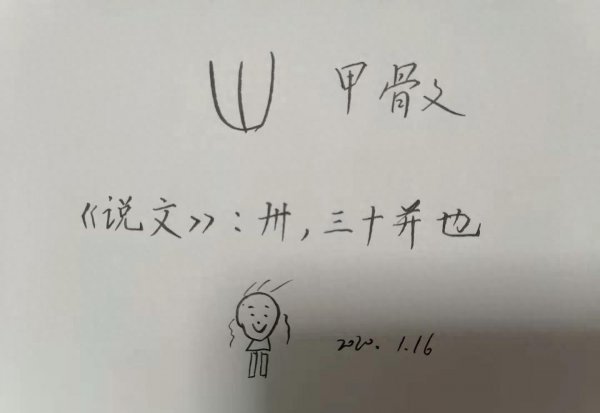 甲骨文
《说文》：卅，三十并也
2020.1.16